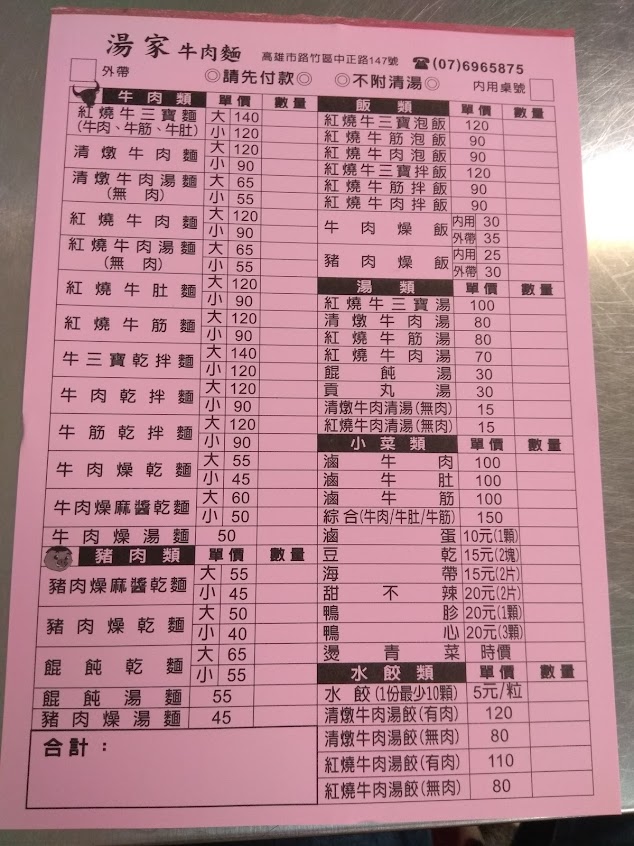 湯家 牛肉麵 高雄市路竹區中正路147號 ☎(07)6965875
外帶 ◎請先付款◎ ◎不附清湯◎ 內用桌號
牛肉類 單價 數量
紅燒牛三寶麵 大 140
(牛肉、牛筋、牛肚) 小 120
清燉牛肉麵 大 120
小 90
清燉牛肉湯麵 大 65
(無肉) 小 55
紅燒牛肉麵 大 120
小 90
紅燒牛肉湯麵 大 65
(無肉) 小 55
紅燒牛肚麵 大 120
小 90
紅燒牛筋麵 大 120
小 90
牛三寶乾拌麵 大 140
小 120
牛肉乾拌麵 大 120
小 90
牛筋乾拌麵 大 120
小 90
牛肉燥乾麵 大 55
小 45
牛肉燥麻醬乾麵 大 60
小 50
牛肉燥湯麵 50
豬肉類 單價 數量
豬肉燥麻醬乾麵 大 55
小 45
豬肉燥乾麵 大 50
小 40
餛飩乾麵 大 65
小 55
餛飩湯麵 55
豬肉燥湯麵 45
合計：
飯類 單價 數量
紅燒牛三寶泡飯 120
紅燒牛筋泡飯 90
紅燒牛肉泡飯 90
紅燒牛三寶拌飯 120
紅燒牛筋拌飯 90
紅燒牛肉拌飯 90
牛肉燥飯 內用 30
外帶 35
豬肉燥飯 內用 25
外帶 30
湯類 單價 數量
紅燒牛三寶湯 100
清燉牛肉湯 80
紅燒牛筋湯 80
紅燒牛肉湯 70
餛飩湯 30
貢丸湯 30
清燉牛肉清湯(無肉) 15
紅燒牛肉清湯(無肉) 15
小菜類 單價 數量
滷牛肉 100
滷牛肚 100
滷牛筋 100
綜合(牛肉/牛肚/牛筋) 150
滷蛋 10元(1顆)
豆乾 15元(2塊)
海帶 15元(2片)
甜不辣 20元(2片)
鴨胗 20元(1顆)
鴨心 20元(3顆)
燙青菜 時價
水餃類 單價 數量
水餃(1份最少10顆) 5元/粒
清燉牛肉湯餃(有肉) 120
清燉牛肉湯餃(無肉) 80
紅燒牛肉湯餃(有肉) 110
紅燒牛肉湯餃(無肉) 80